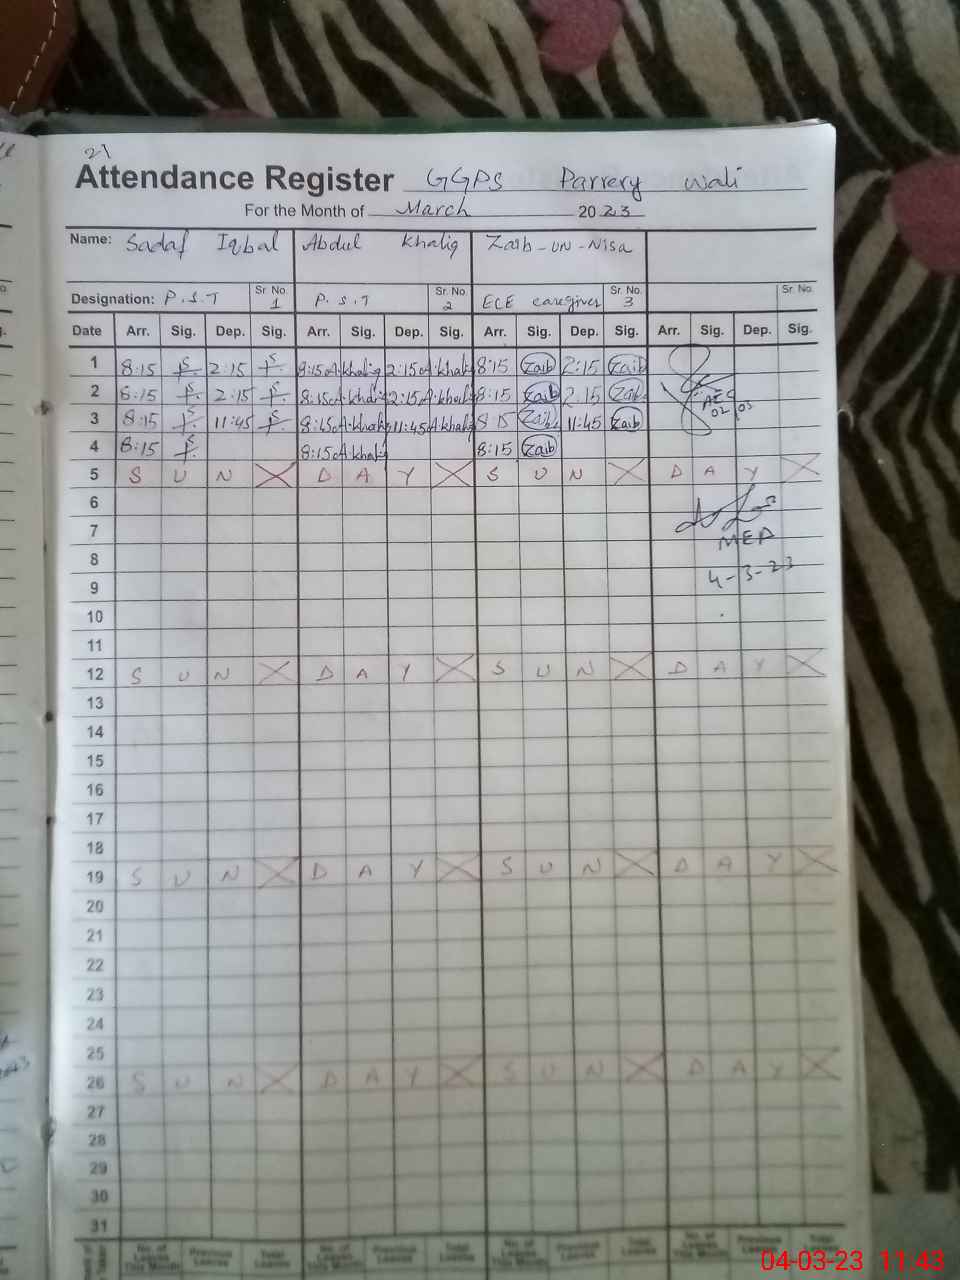 21
Attendance Register GGPS Parrery Wali
For the Month of March 2023
Name: Sadaf Iqbal Abdul Khaliq Zaib-un-Nisa
Sr. No. Sr. No. Sr. No. Sr. No.
Designation: P.S.T 1 P.S.T 2 ECE caregiver 3
Date Arr. Sig. Dep. Sig. Arr. Sig. Dep. Sig. Arr. Sig. Dep. Sig. Arr. Sig. Dep. Sig.
1 8:15 2:15 8:15 A.khaliq 2:15 A.khaliq 8:15 Zaib 2:15 Zaib
2 8:15 2:15 8:15 A.khaliq 2:15 A.khaliq 8:15 Zaib 2:15 Zaib
3 8:15 11:45 8:15 A.khaliq 11:45 A.khaliq 8:15 Zaib 11:45 Zaib
4 8:15 8:15 A.khaliq 8:15 Zaib
5 S U N D A Y S U N D A Y
6
7
MEA
8
4-3-23
9
10
11
12 S U N D A Y S U N D A Y
13
14
15
16
17
18
19 S U N D A Y S U N D A Y
20
21
22
23
24
25
26 S U N D A Y S U N D A Y
27
28
29
30
31
No. of Leaves This Month Previous Leaves Total Leaves No. of Leaves This Month Previous Leaves Total Leaves No. of Leaves This Month Previous Leaves Total Leaves
04-03-23 11:43